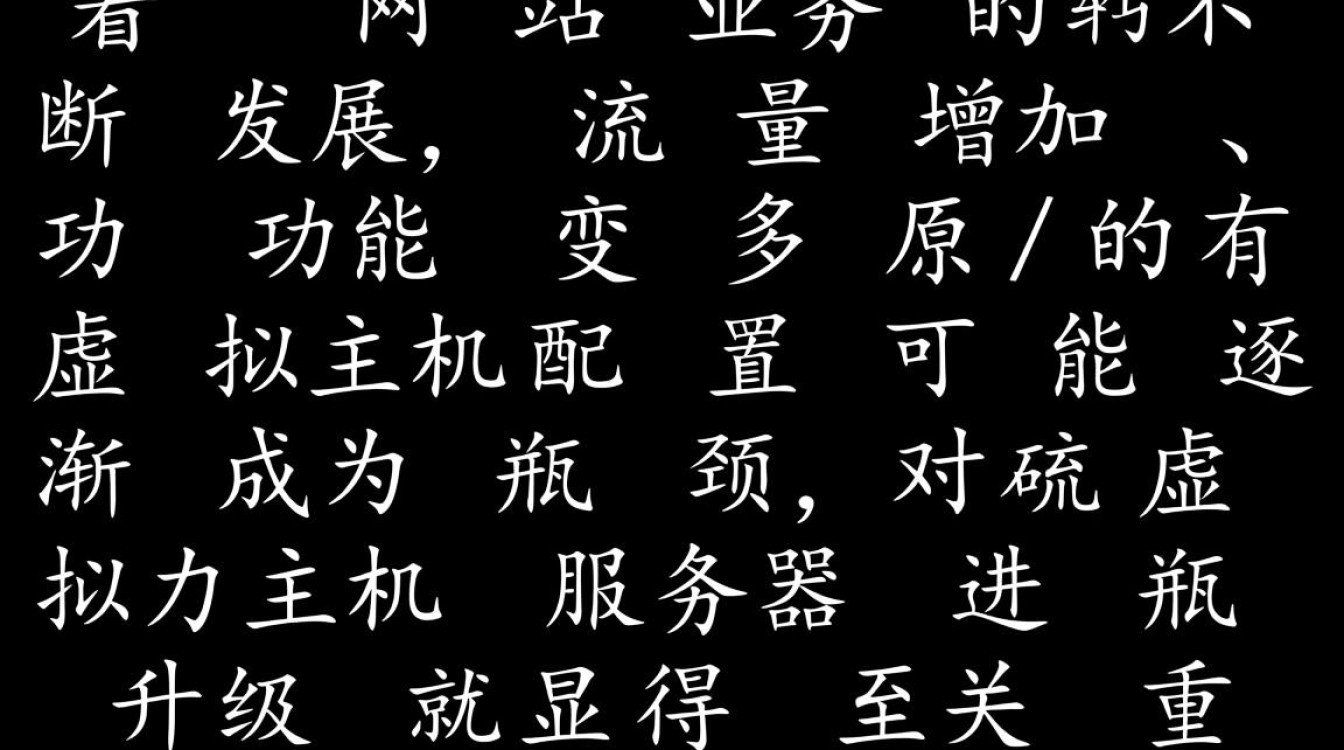 着 网 站 业务 的 不
断 发展， 流 量 增加 、
功 功能 变 多 原/的有
虚 拟主机配 置 可 能 逐
渐 成为 瓶 颈，对硫虚
拟力主机 服务器 进 瓶
升级 就显得 至关 重